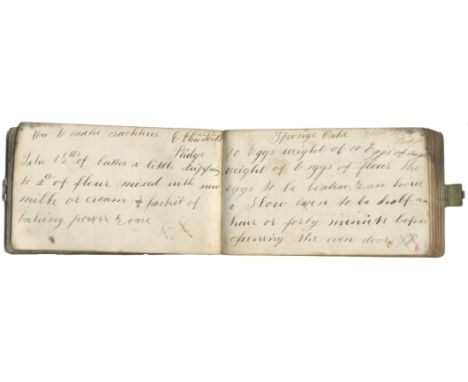 How to make cracklins
Pidge
Take 1 lb of butter a little
to 2 of flour mixed with new
milk or cream & packet of
baking power & one
Sponge Cake
10 Eggs weight of 10 Eggs of
weight of 6 eggs of flour the
eggs to be beaten & an hour
a Slow oven to be half an
hour or forty minuts before
opening the oven door XX